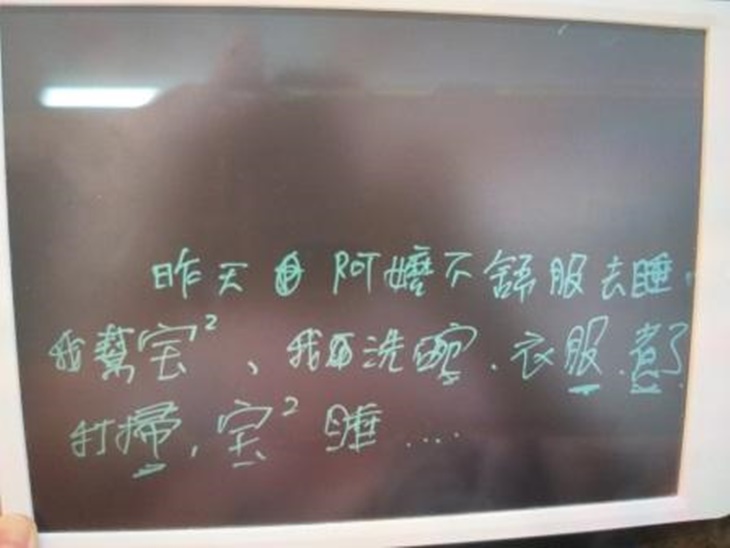 昨天阿嬤不舒服去睡,
我幫宝²、我洗碗.衣服.煮了
打掃,宝²睡....